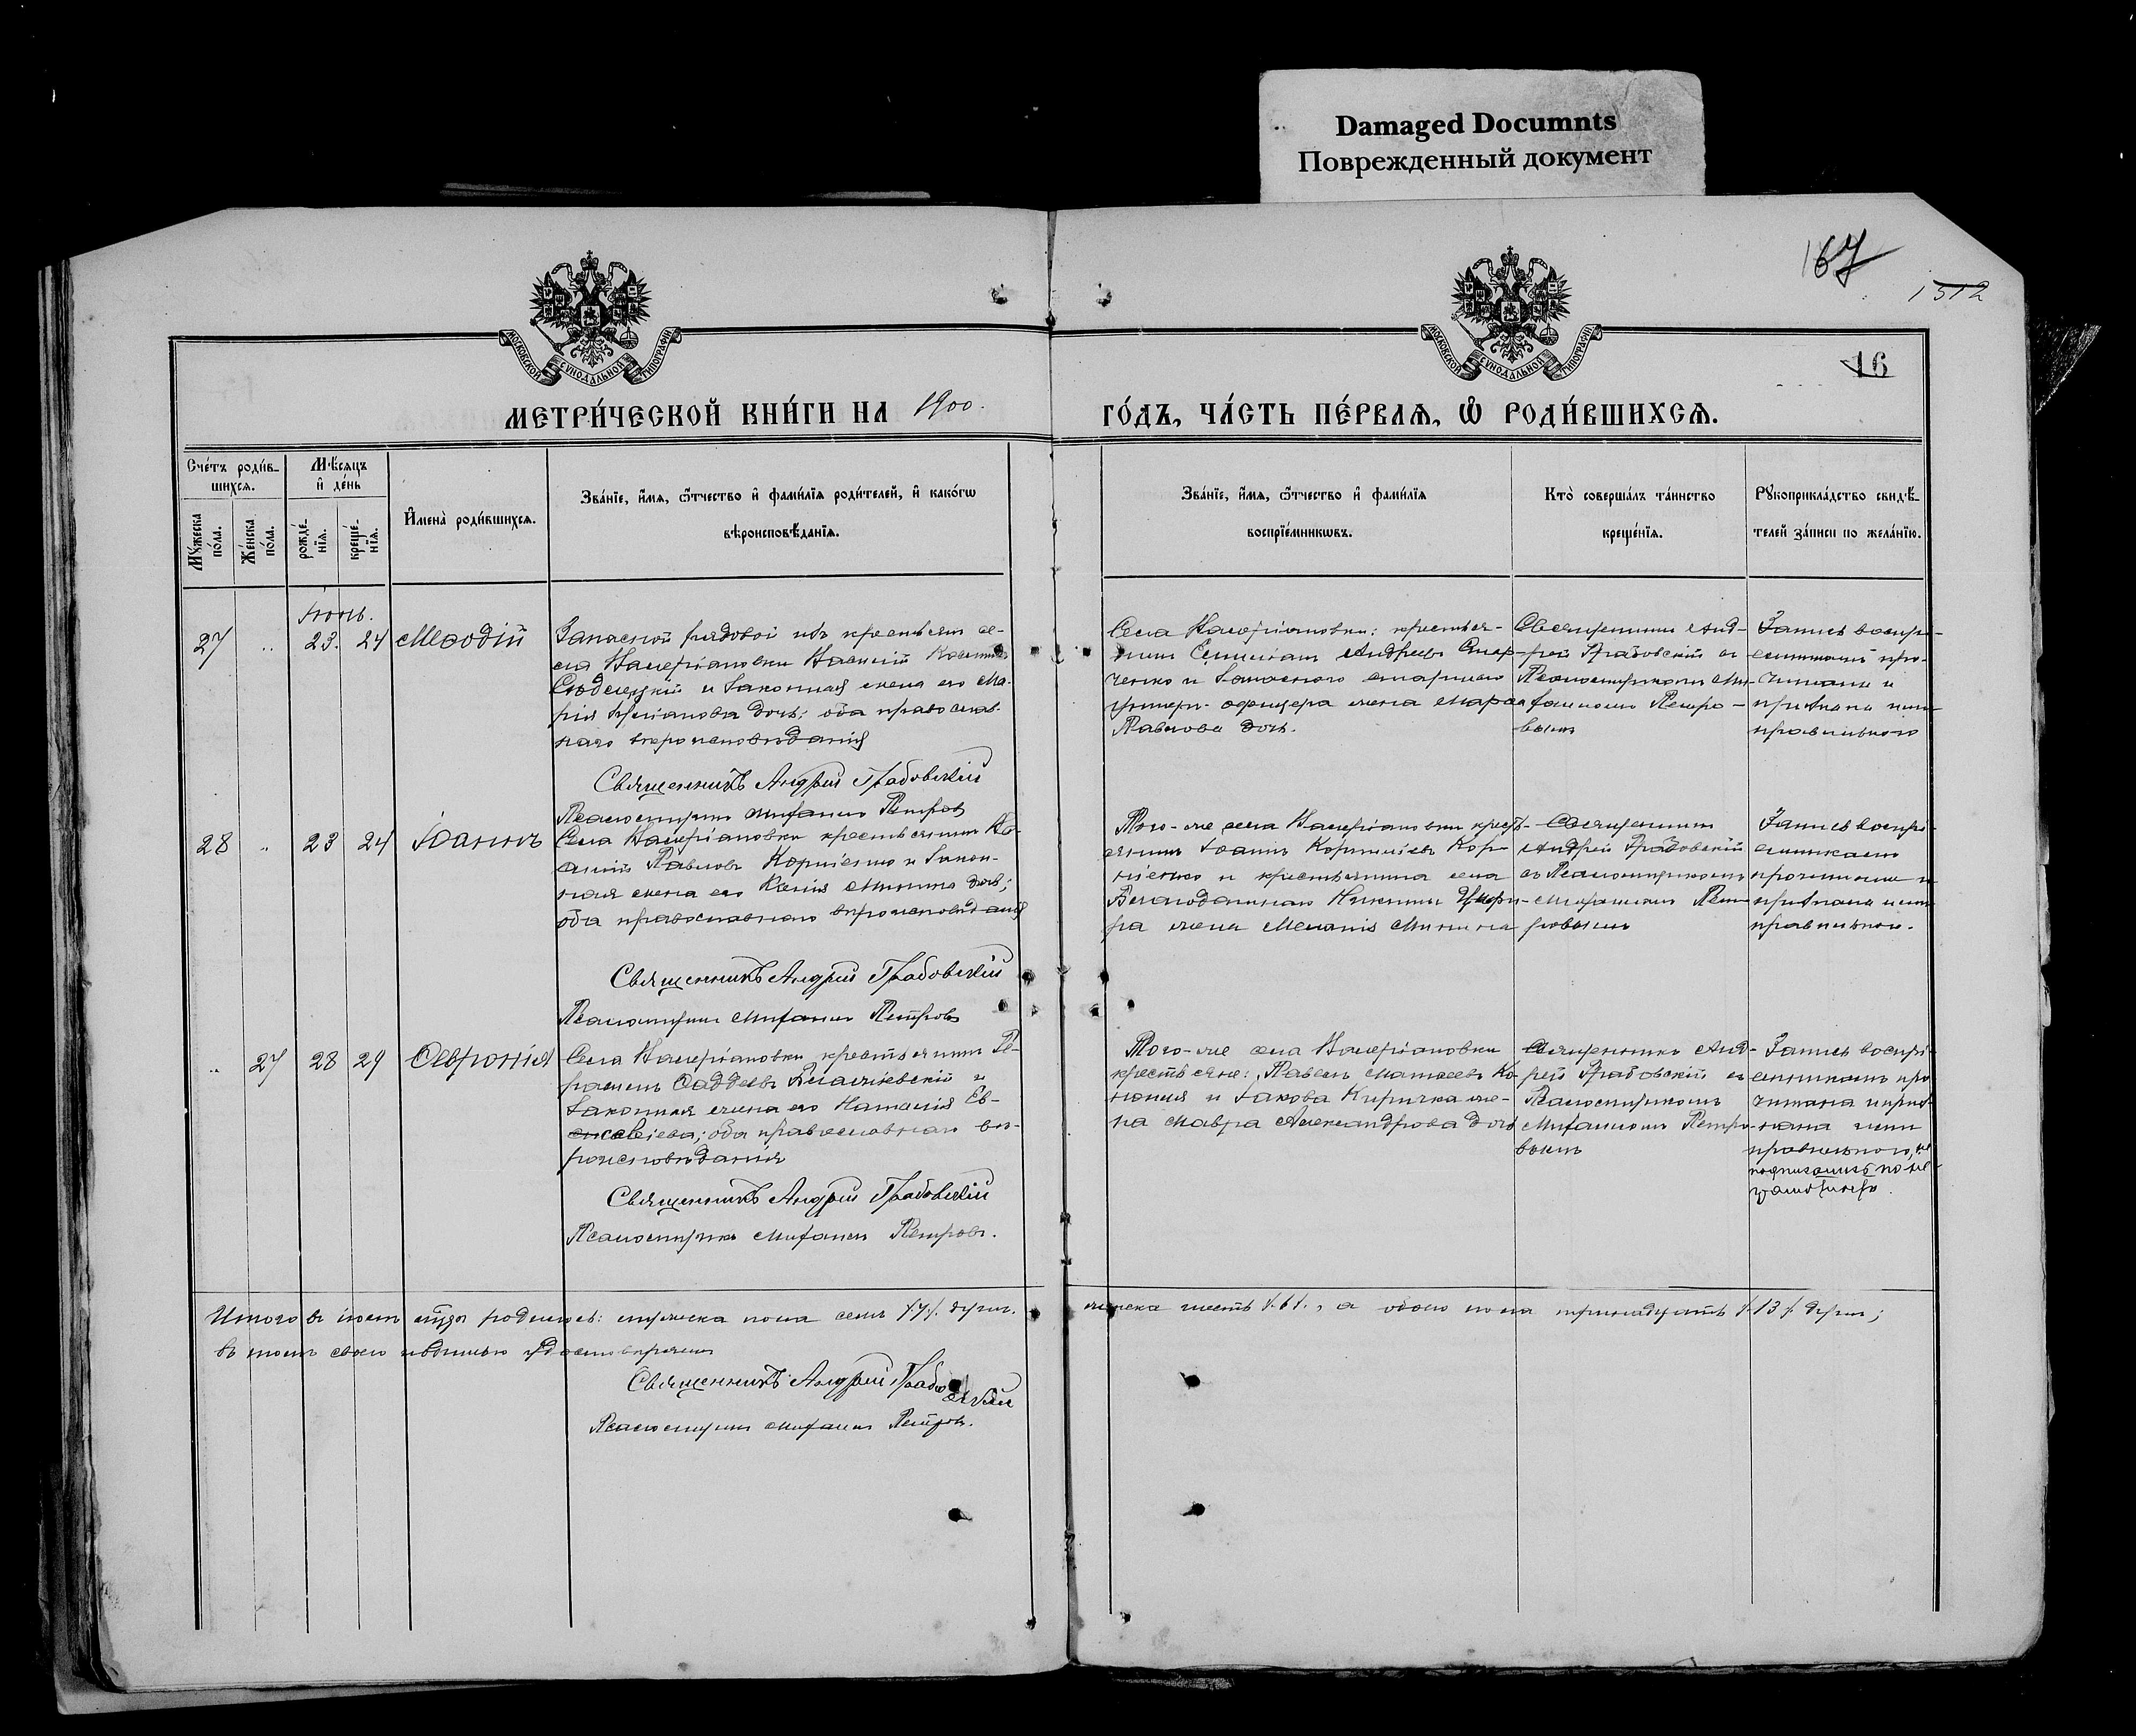 Damaged Documnts
Поврежденный документ
167
1512
МОСКОВСКОЙ СѴНОДАЛЬНОЙ ТИПОГРАФІИ
МОСКОВСКОЙ СѴНОДАЛЬНОЙ ТИПОГРАФІИ
16
МЕТРИ́ЧЕСКОЙ КНИ́ГИ НА 1900.
ГО́ДЪ, ЧА́СТЬ ПЕ́РВАЯ, Ѡ РОДИ́ВШИХСЯ.
Сче́тъ роди́в-
шихся.
Мꙋ́жеска по́ла.
Же́нска по́ла.
Мѣ́сяцъ
и҆ де́нь
рожде́-
нїя.
креще́-
нїя.
И҆мена̀ роди́вшихся.
Зва́нїе, и҆́мя, ѻ҆́тчество и҆ фами́лїя роди́телей, и҆ како́гѡ
вѣроисповѣ́данїя.
Зва́нїе, и҆́мя, ѻ҆́тчество и҆ фами́лїя
воспрїе́мникѡвъ.
Кто̀ соверша́лъ та́инство
креще́нїя.
Рꙋкоприкла́дство свидѣ́-
телей за́писи по жела́нїю.
Іюнь.
27 " 23. 24 Меѳодій
Запасной рядовой изъ крестьянъ се-
ла Валеріановки Василій
и законная жена его Ма-
рія дочь; оба православ-
наго вѣроисповѣданія
Священникъ Андрей Грабовскій
Псаломщикъ Митрофанъ Петровъ
Села Валеріановки: крестья-
нинъ Андреевъ
ченко и запаснаго старшаго
унтеръ-офицера жена
Павлова дочь.
Священникъ Анд-
рей Грабовскій съ
Псаломщикомъ Ми-
Петро-
вымъ
Запись воспрі-
емникамъ про-
читана и
признана ими
правильною
28 " 23 24 Іоаннъ
Села Валеріановки крестьянинъ Ва-
силій Павловъ Корніенко и закон-
ная жена его Ксенія Минина дочь;
оба православнаго вѣроисповѣданія
Священникъ Андрей Грабовскій
Псаломщикъ Митрофанъ Петровъ
Того-же села Валеріановки кресть-
янинъ Іоаннъ Корниліевъ Кор-
ніенко и крестьянина села
Благодатнаго Никиты
жена Меланія Минина
Священникъ
Андрей Грабовскій
съ Псаломщикомъ
Пет-
ровымъ
Запись воспрі-
емникамъ
прочитана и
признана ими
правильною.
" 27 28 29 Ѳевронія
Села Валеріановки крестьянинъ Ге-
расимъ Ѳаддеевъ и
законная жена его Наталія Ев-
севіева; оба православнаго вѣ-
роисповѣданія
Священникъ Андрей Грабовскій
Псаломщикъ Митрофанъ Петровъ.
Того-же села Валеріановки
крестьяне: Павелъ Матѳеевъ Ко-
и Іакова Киричка же-
на Мавра Александрова дочь
Священникъ Анд-
рей Грабовскій съ
Псаломщикомъ
Петро-
вымъ
Запись воспрі-
емникамъ про-
читана и приз-
нана ими
правильною, не
подписались по не-
грамотности.
Итого въ іюнѣ родилось: мужеска пола семь /.7./ душъ.
женска шесть /.6/., а обоего пола тринадцать /.13/. душъ;
въ томъ своею подписью удостовѣряемъ
Священникъ Андрей Грабовскій
Псаломщикъ Митрофанъ Петровъ.